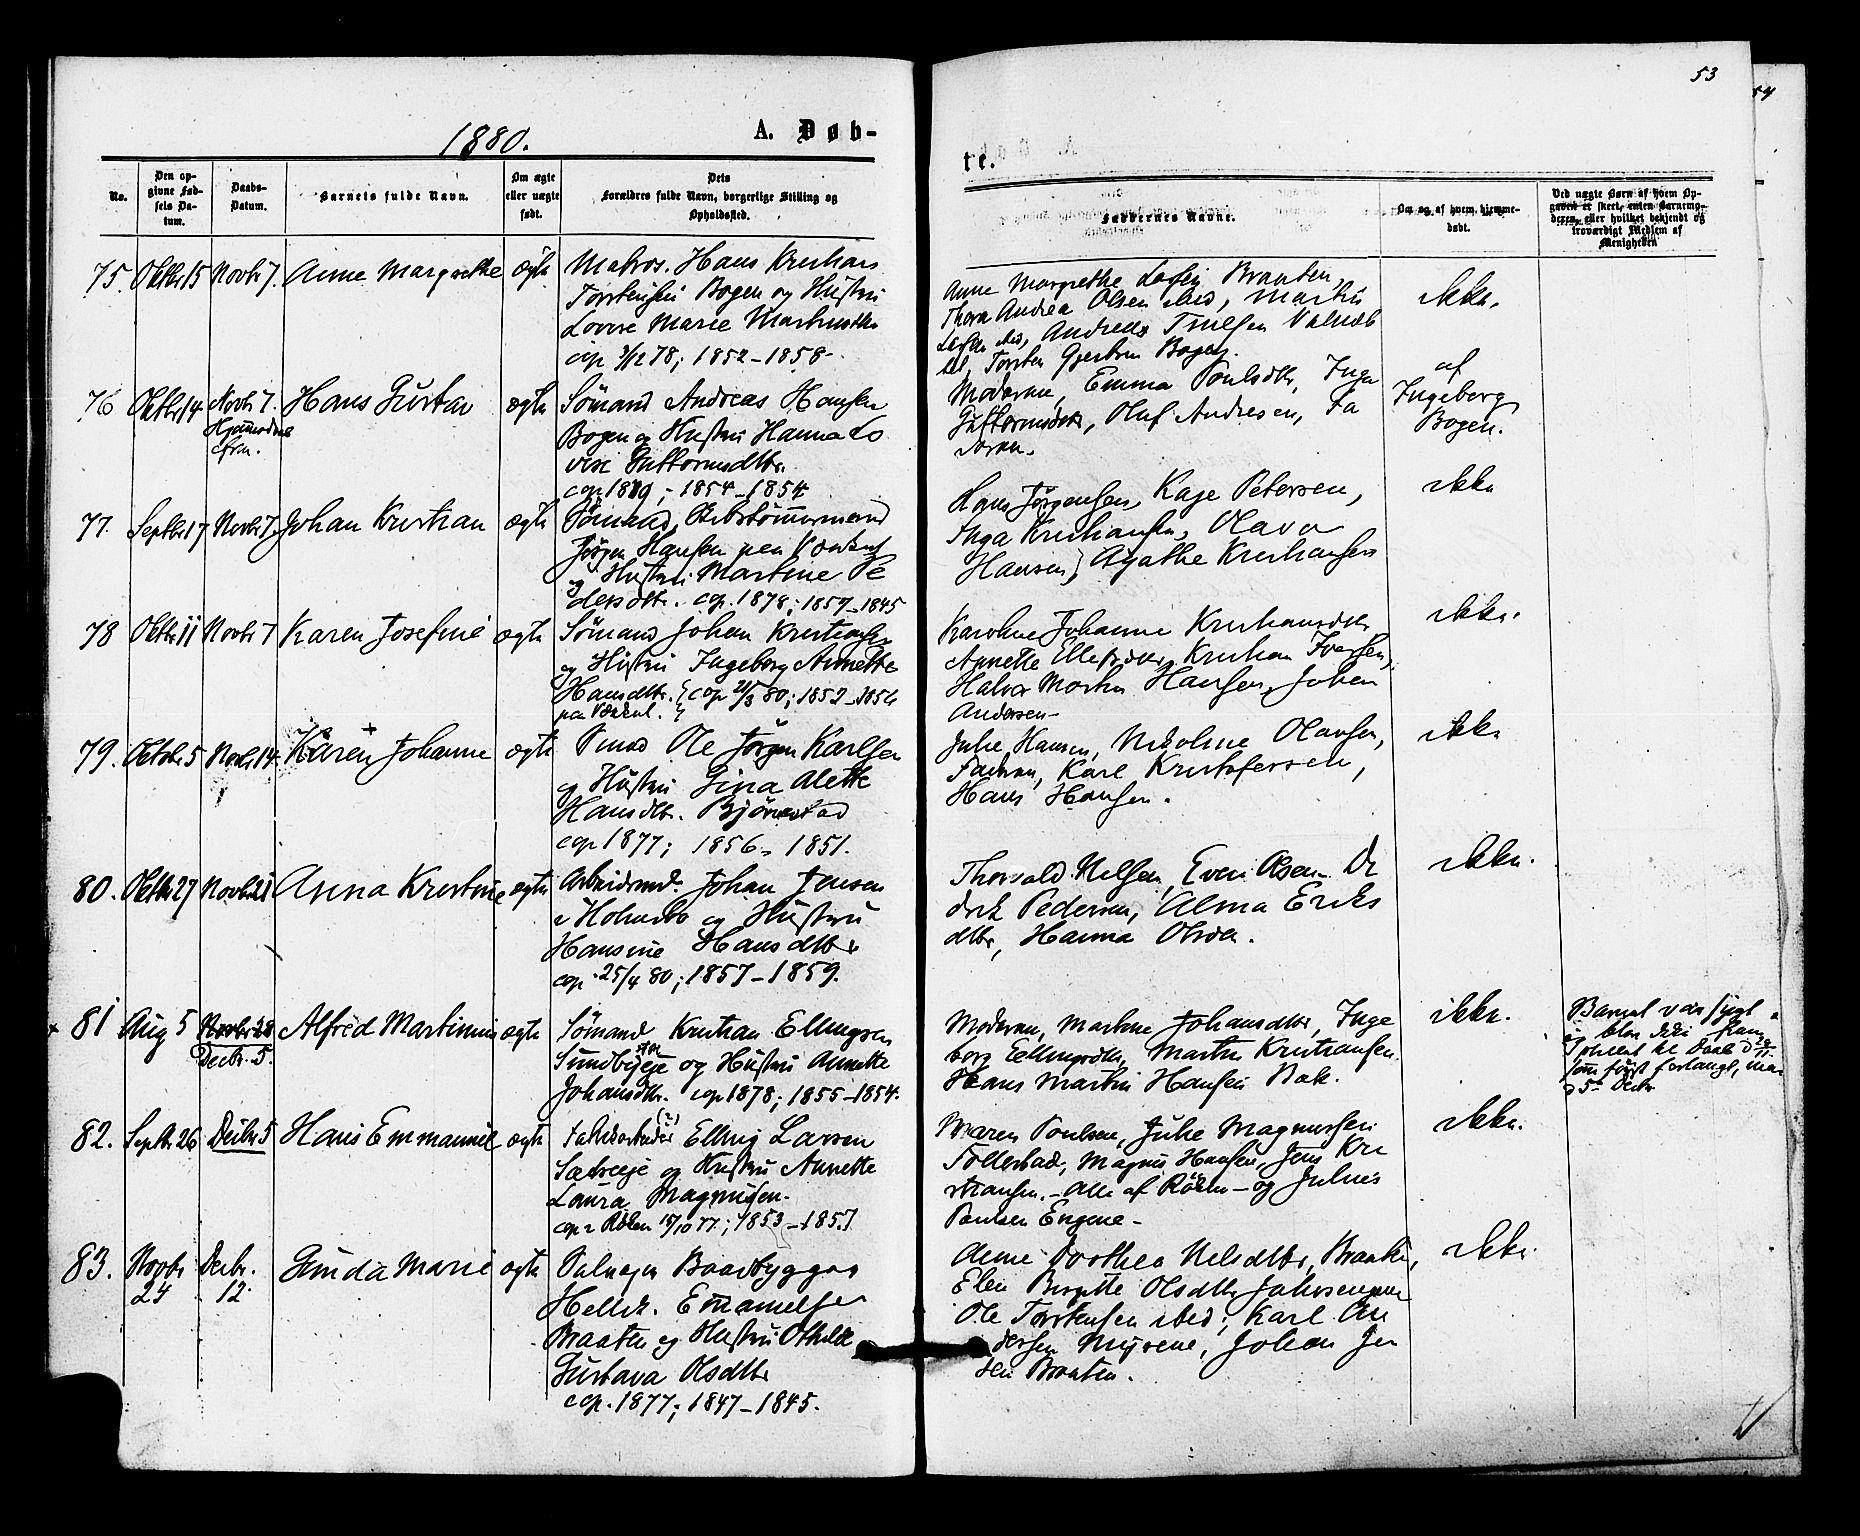 53
54
1880.
A. Døb-
te.
No.
Den op-
givne Fød-
sels Da-
tum.
Daabs-
Datum.
Barnets fulde Navn.
Om ægte
eller uægte
født.
Dets
Forældres fulde Navn, borgerlige Stilling og
Opholdssted.
Faddernes Navne.
Om og af hvem hjemme-
døbt.
Ved uægte Børn af hvem Op-
gaven er skeet, enten Barnemo-
deren, eller hvilket bekjendt og
troværdigt Medlem af
Menigheden
75. Oktbr 15 Novbr 7. Anne Margrethe ægte
Matros. Hans Kristian
Torstensen Bogen og Hustru
Lovise Marie
cop 78; 1852-1858.
Anne Margrethe Braaten,
Thora Andrea Olsen ibid, Martin
ibid, Andreas
Torsten Bogen.
ikke.
76 Oktbr 14 Novbr 7. Hans Gustav ægte
Sømand Andreas Hansen
Bogen og Hustru Hanna Lo
vise Guttormsdtr.
cop 1879; - 1854-1854
Moderen, Emma Poulsdtr, Inga
Guttormsdtr, Oluf Andresen, Fa
deren.
af
Ingeborg
Bogen.
77. Septbr 17 Novbr 7. Johan Kristian ægte
Sømand, Skibstømmermand
Jørgen Hansen
og Hustru Martine Pe
dersdtr. cop. 1878; 1857-1845
Hans Jørgensen, Kaje Petersen,
Inga Kristiansen, Olava
Hansen, Agathe Kristiansen
ikke
78 Oktbr 11 Novbr 7 Karen Josefine ægte
Sømand Johan Kristiansen
og Hustru Ingeborg Annette
Hansdtr. cop 80; 1852-1856
Karoline Johanne Kristiansdtr
Annette Ellefsdtr, Kristian Iversen,
Halvor Morten Hansen, Johan
Andersen-
ikke.
79. Octobr 5 Novbr 14 Karen Johanne ægte
Smed Ole Jørgen Karlsen
og Hustru Gina Alette
Hansdtr. Bjørnstad
cop 1877; 1856-1851.
Julie Hansen, Nikoline Olausen,
Faderen, Karl Kristofersen,
Hans Hansen.
ikke
80. Oktbr 27 Novbr 21 Anna Kristine ægte
Arbeidsmd. Johan Jensen
i Holmsbo og Hustru
Hansine Hansdtr
cop. 25/4 80; 1857-1859.
Thorvald Nilsen, Even Olsen Di
drik Pedersen, Alma Eriks
dtr, Hanna Olsen.
ikke.
81 Aug 5 Novbr 28 Alfred Martinius ægte
Decbr. 5.
Sømand Kristian Ellingsen
Sundbyeje og Hustru Annette
Johansdtr. cop 1878; 1855-1854.
Moderen, Martine Johansdtr, Inge
borg Ellingsdtr, Martin Kristiansen
Hans Martin Hansen Bak.
ikke.
Barnet var sygt
og blev ikke frem
til Daab
som først forlangt, men
5te Decbr
82. Septbr 26 Decbr 5 Hans Emmanuel ægte
Elling Larsen
Sætreeje og Hustru Annette
Laura Magnussen.
cop i Røken 15/10 77; 1853-1857
Maren Poulsen, Julie Magnussen
Tollerstad, Magnus Hansen, Jens Kri
stiansen. - Alle af Røken - og Julius
Paulsen Engene-
ikke.
83. Novbr 24 Decbr. 12. Gunda Marie ægte
Baadbygger
Emanuelsen
Braaten og Hustru Othilde
Gustava Olsdtr
cop. 1877; 1847-1845.
Anne Dorthea Nilsdtr, Braaten,
Elen Birgitte Olsdtr
Ole Torstensen ibid; Karl An
dersen Myrene, Johan Jen
sen Braaten.
ikke.